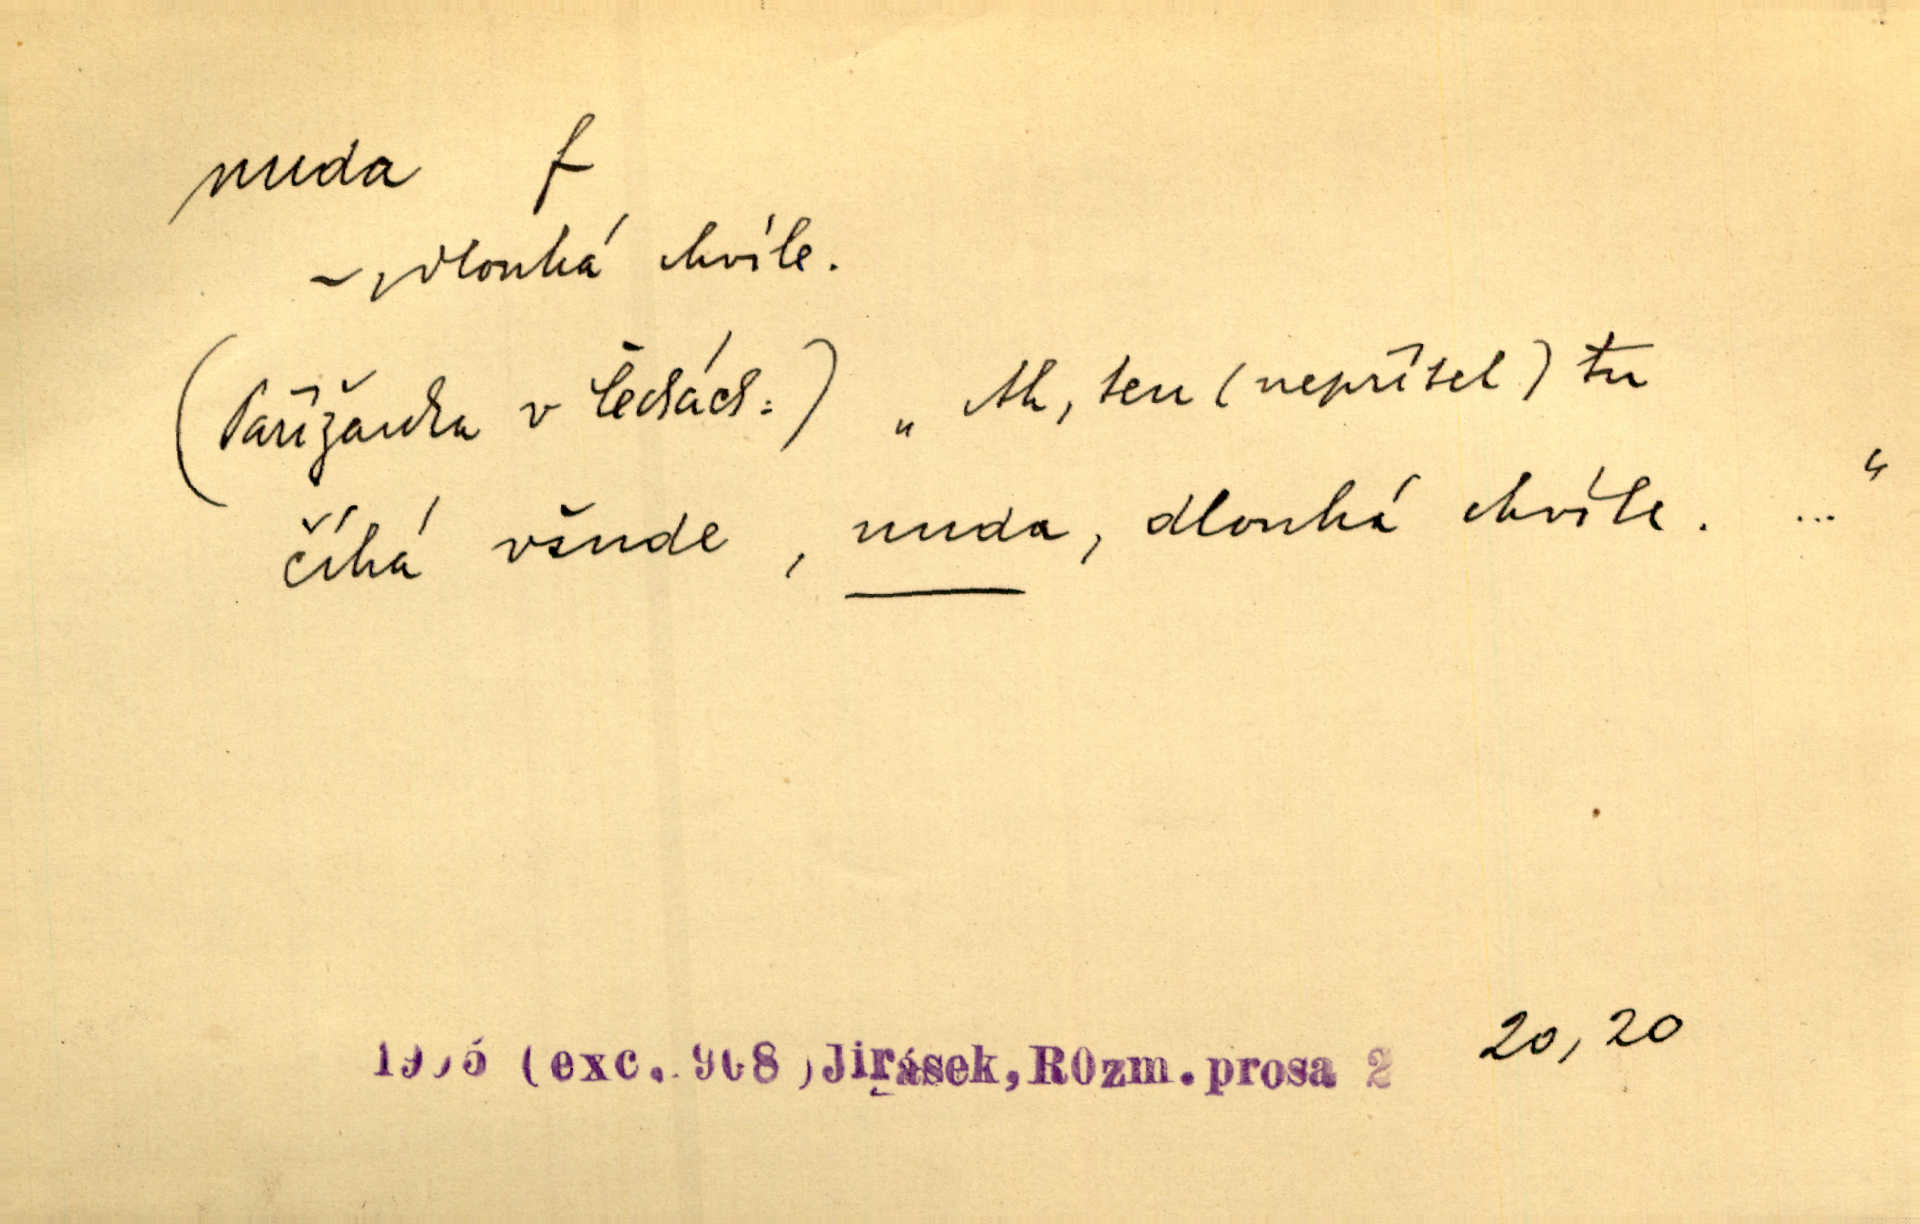 nuda f
– dlouhá chvíle.
(Pařížanka v Čechách:) „Ah, ten (nepřítel) tu
číhá všude, nuda, dlouhá chvíle. ..."
(exc. 908) Jirásek, ROzm. prosa 2 20, 20